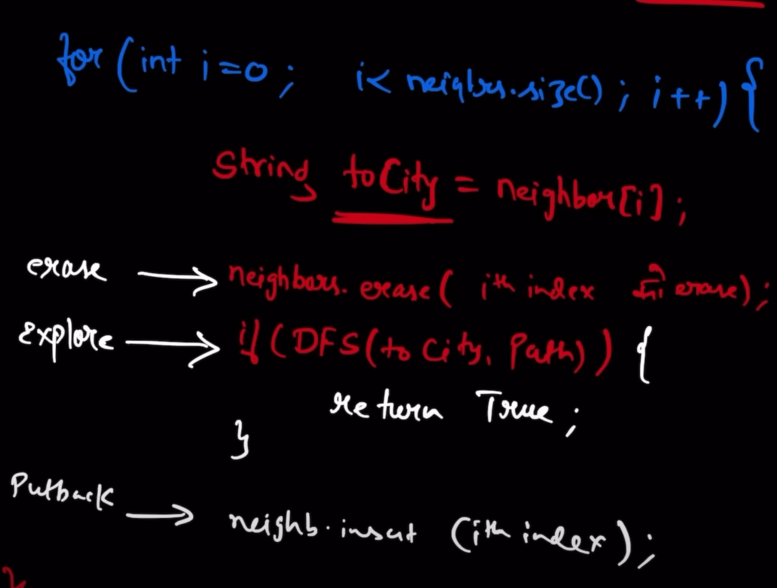 for (int i=0; i< neighbrs.size(); i++) {
String toCity = neighbor[i];
erase → neighbors.erase( ith index erase);
Explore → if (DFS(toCity, Path)) {
return True;
}
Putback → neighb.insert (ith index);
}